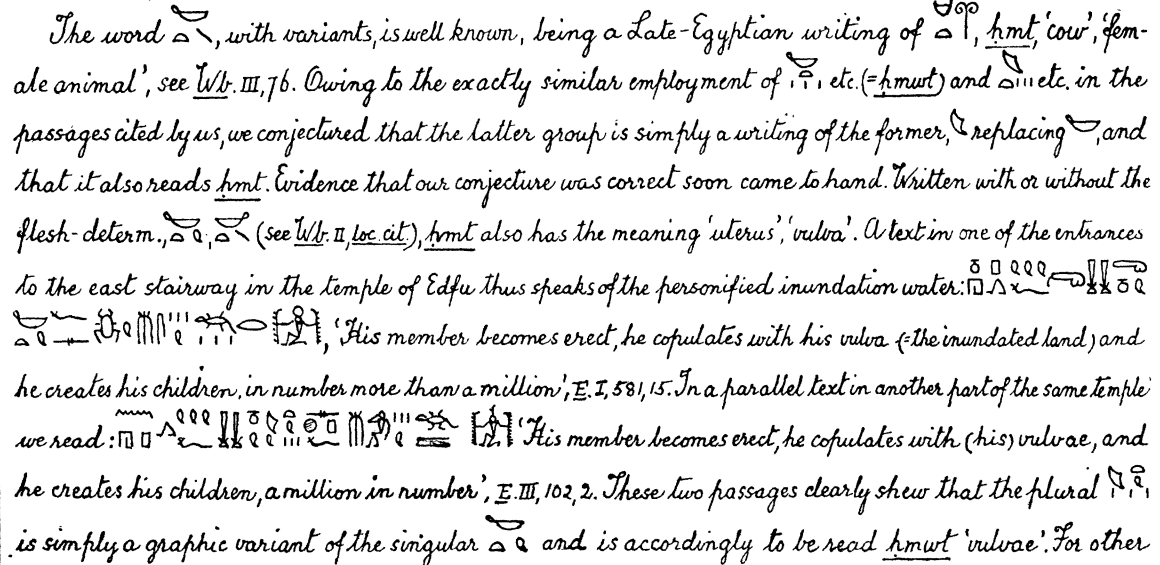 The word, with variants, is well known, being a Late-Egyptian writing of, ḥmt, 'cow', 'fem-
ale animal', see Wb. III, 76. Owing to the exactly similar employment of etc. (= ḥmwt) and etc. in the
passages cited by us, we conjectured that the latter group is simply a writing of the former, replacing, and
that it also reads ḥmt. Evidence that our conjecture was correct soon came to hand. Written with or without the
flesh-determ., , (see Wb. II, loc. cit.), ḥmt also has the meaning 'uterus', 'vulva'. A text in one of the entrances
to the east stairway in the temple of Edfu thus speaks of the personified inundation water:
, 'His member becomes erect, he copulates with his vulva (= the inundated land) and
he creates his children, in number more than a million', E. I, 581, 15. In a parallel text in another part of the same temple
we read: 'His member becomes erect, he copulates with (his) vulvae, and
he creates his children, a million in number', E. III, 102, 2. These two passages clearly shew that the plural
is simply a graphic variant of the singular and is accordingly to be read ḥmwt 'vulvae'. For other